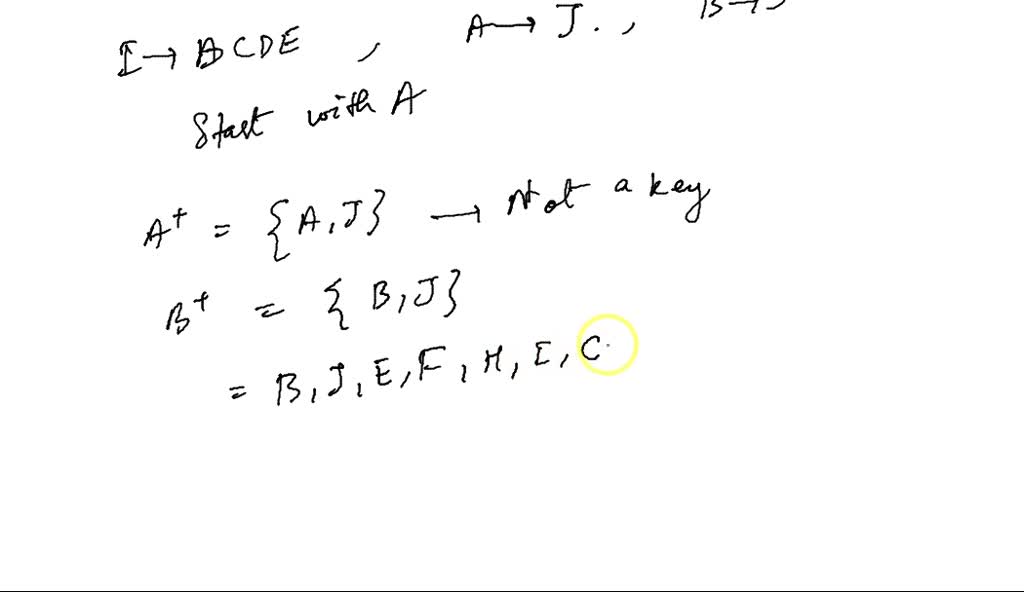 I → BCDE , A → J . , B → J
Start with A
A⁺ = {A, J} → Not a key
B⁺ = { B, J}
= B, J, E, F, H, I, C